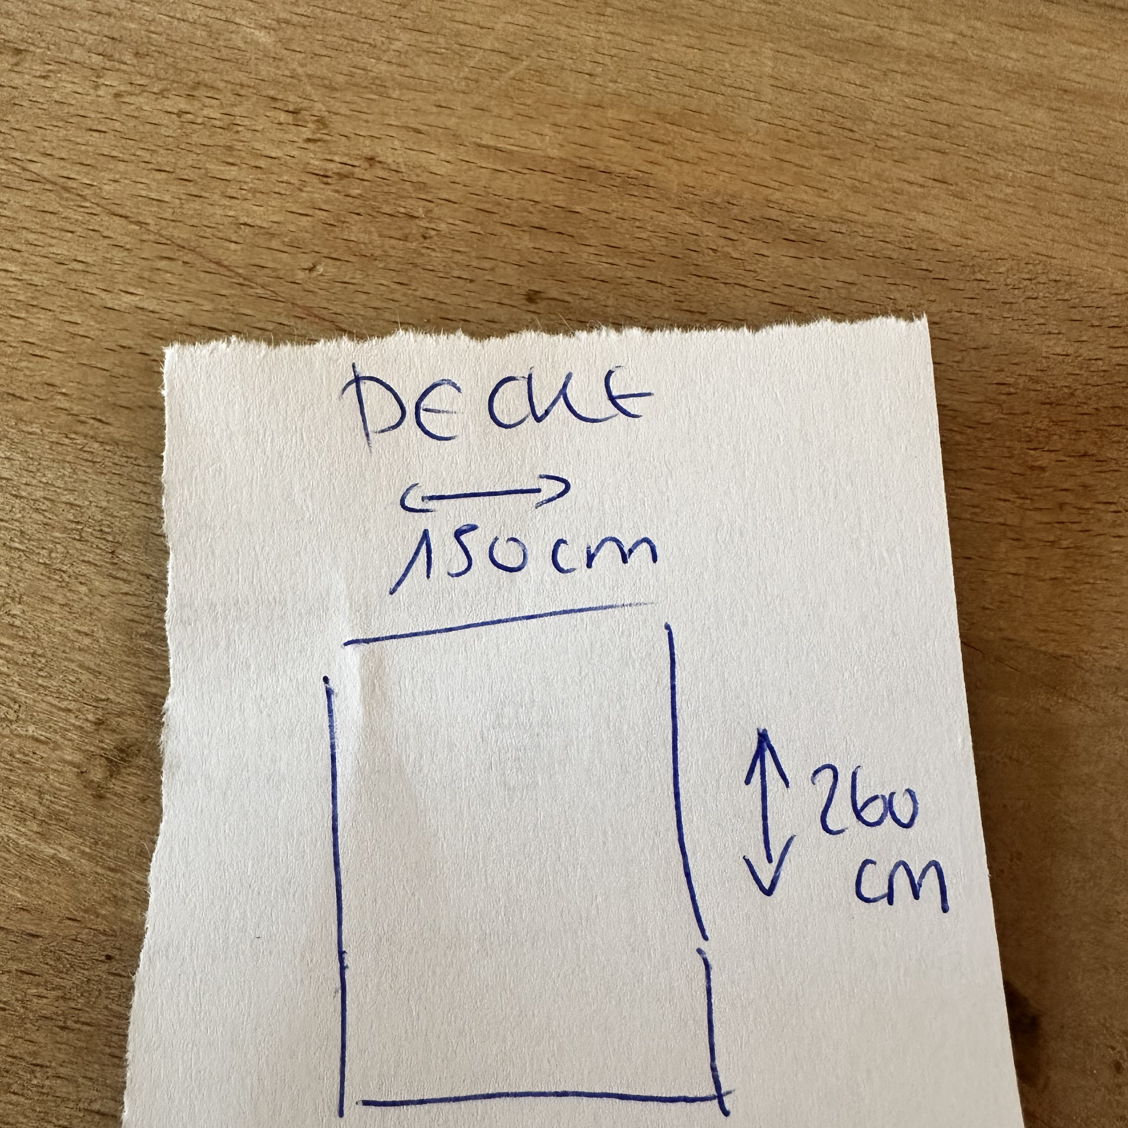 DECKE
150cm
260
cm